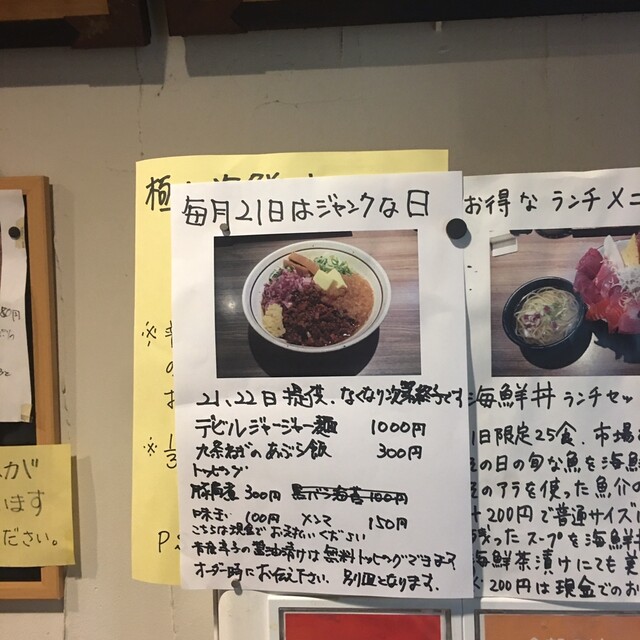 毎月21日はジャンクな日
21、22日提供、なくなり次第終了です
デビルジャージャー麺 1000円
九条ねぎのあぶら飯 300円
トッピング
豚角煮 300円 黒バラ海苔 100円
味玉 100円 メンマ 150円
こちらは現金でお支払いください
青唐辛子の醤油漬けは無料トッピングできます
オーダー時にお伝え下さい。別皿となります。
お得な ランチメニ
海鮮丼 ランチセッ
日限定25食、市場
の日の旬な魚を海鮮
のアラを使った魚介の
200円で普通サイズ
残ったスープを海鮮丼
海鮮茶漬けにても
200円は現金でのお
極
※
※
が
います
ださい。